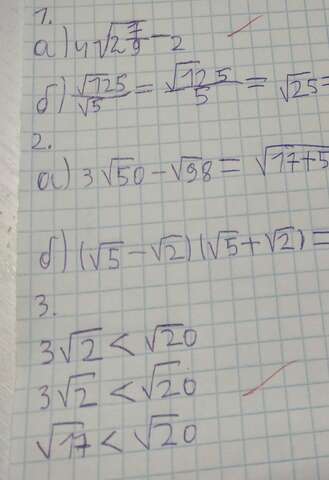 1.
а) 4√2 7/9 − 2
б) √125/√5 = √125/5 = √25 =
2.
а) 3√50 − √98 = √17+5
б) (√5 − √2)(√5 + √2) =
3.
3√2 < √20
3√2 < √20
√17 < √20